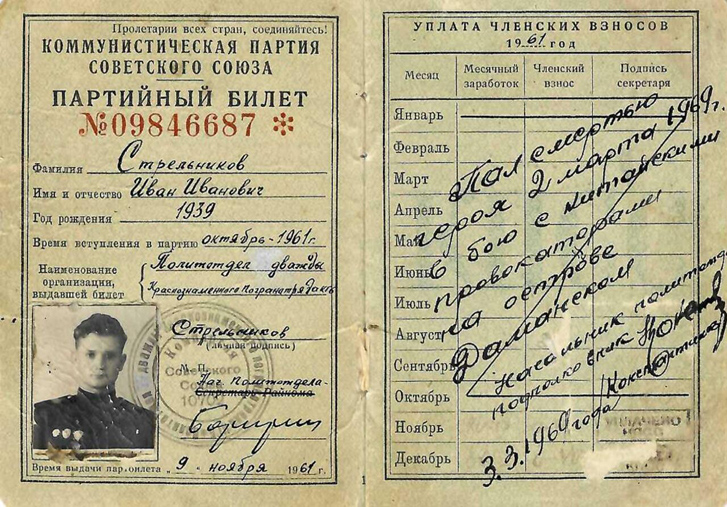 Пролетарии всех стран, соединяйтесь!
КОММУНИСТИЧЕСКАЯ ПАРТИЯ
СОВЕТСКОГО СОЮЗА
ПАРТИЙНЫЙ БИЛЕТ
№09846687 *
Фамилия Стрельников
Имя и отчество Иван Иванович
Год рождения 1939
Время вступления в партию октябрь-1961г.
Наименование организации, выдавшей билет
Политотдел дважды
Краснознаменного Погранотряда
Стрельников
(личная подпись)
М. П.
Нач. Политотдела
Секретарь Райкома
Время выдачи парт. билета „9 ноября 1961г.
УПЛАТА ЧЛЕНСКИХ ВЗНОСОВ
1961 год
Месяц
Месячный заработок
Членский взнос
Подпись секретаря
Январь
Февраль
Март
Апрель
Май
Июнь
Июль
Август
Сентябрь
Октябрь
Ноябрь
Декабрь
Пал смертью
героя 2 марта 1969г.
в бою с китайскими
провокаторами
на острове
Даманском
Начальник политотдела
подполковник
Константинов
3.3.1969 года